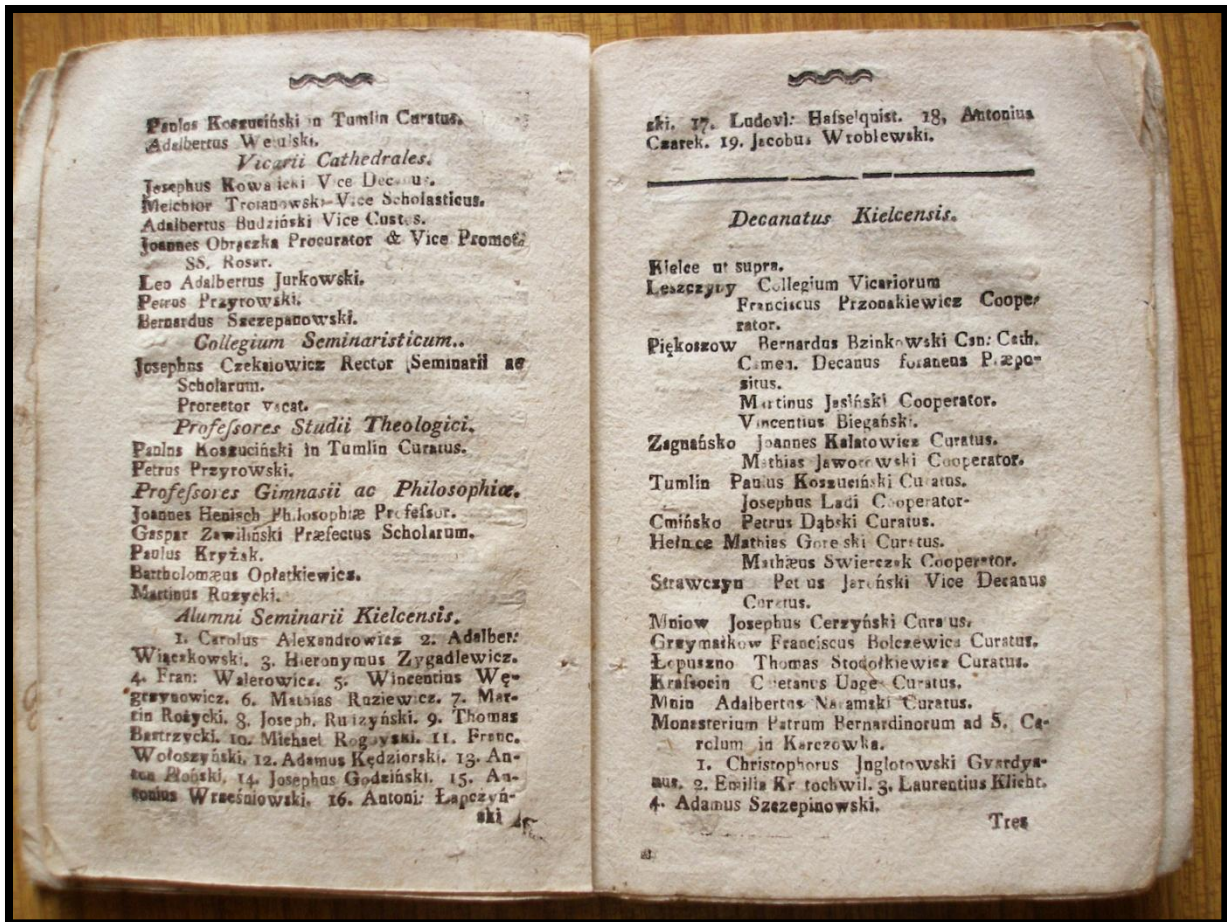 Paulos Koszuciński in Tumlin Curatus.
Adalbertus
Vicarii Cathedrales.
Josephus Vice
Melchior Troianowski Vice Scholasticus.
Adalbertus Budziński Vice Custos.
Joannes Obrączka Procurator & Vice Promot:
SS. Rosar.
Leo Adalbertus Jurkowski.
Petrus Przyrowski.
Bernardus Szczepanowski.
Collegium Seminaristicum..
Josephus Czekaiowicz Rector Seminarii ac
Scholarum.
Prorector vacat.
Profeſsores Studii Theologici.
Paulus Koszuciński in Tumlin Curatus.
Petrus Przyrowski.
Profeſsores Gimnasii ac Philosophiæ.
Joannes Henisch Philosophiæ Profeſsor.
Gaspar Zawiliński Præfectus Scholarum.
Paulus Kryżak.
Bartholomæus Opłatkiewicz.
Martinus Rożycki.
Alumni Seminarii Kielcensis.
1. Carolus Alexandrowicz 2. Adalber:
Wiączkowski. 3. Hieronymus Zygadlewicz.
4. Fran: Walerowicz. 5. Wincentius Wę-
grzynowicz. 6. Mathias Ruziewicz. 7. Mar-
tin Rożycki. 8. Joseph. 9. Thomas
Bastrzycki. 10. Michael 11. Franc.
Wołoszyński. 12. Adamus Kędziorski. 13. An-
ton Płoński. 14. Josephus Godziński. 15. An-
tonius Wrześniowski. 16. Antoni: Łapczyń-
ski
ski. 17. Ludovi: Haſselquist. 18, Antonius
Czarek. 19. Jacobus Wroblewski.
Decanatus Kielcensis.
Kielce ut supra.
Leszczyny Collegium Vicariorum
Franciscus Przonakiewicz Coope-
rator.
Piękoszow Bernardus Bzinkowski Can: Cath.
Camen. Decanus foraneus Præpo-
situs.
Martinus Jasiński Cooperator.
Vincentius Biegański.
Zagnańsko Joannes Kalatowicz Curatus.
Mathias Cooperator.
Tumlin Paulus Koszuciński Curatus.
Josephus Ladi Cooperator-
Cmińsko Petrus Dąbski Curatus.
Mathias Curatus.
Mathæus Swierczek Cooperator.
Strawczyn Petrus Jaroński Vice Decanus
Curatus.
Mniow Josephus Cerzyński Curatus.
Grzymałkow Franciscus Bolczewicz Curatus.
Łopuszno Thomas Stodołkiewicz Curatus.
Kraſsocin Curatus.
Mnin Adalbertus Naramski Curatus.
Monasterium Patrum Bernardinorum ad S. Ca-
rolum in Karczowka.
1. Christophorus Jnglotowski Gvardya-
nus. 2. Emilia 3. Laurentius Klicht.
4. Adamus Szczepinowski.
Tres